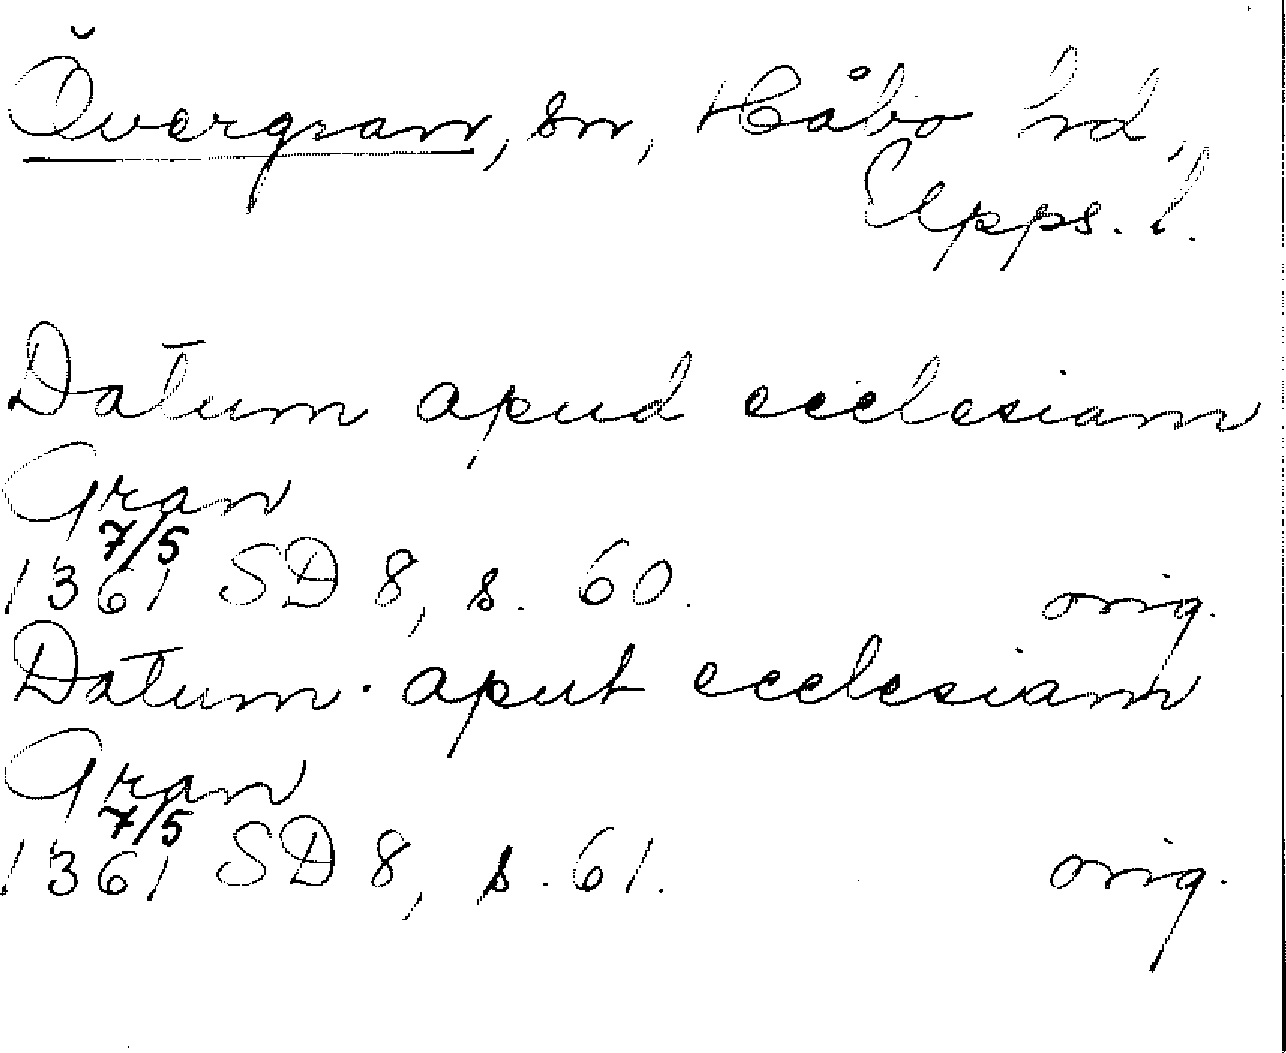 Övergran, sn, Håbo hd,
Upps. l.
Datum apud ecclesiam
Gran
7/5
1361 SD 8, s. 60. orig.
Datum aput ecclesiam
Gran
7/5
1361 SD 8, s. 61. orig.